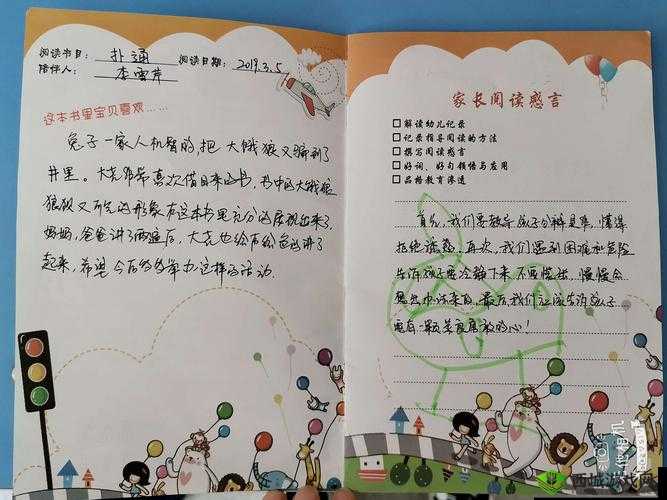 阅读书目： 扑通
陪伴人： 李雪芹
阅读日期： 2019.3.5
这本书里宝贝喜欢……
兔子一家人机智的,把大饿狼又骗到了
井里。大
喜欢借回来的书,书中的大饿狼
狼狈又
的形象在这本书里充分的展现出来了
妈妈,爸爸讲了两遍后,大
也给
讲了
起来,希望今后多多举办这样的活动
家长阅读感言
□解读幼儿记录
□记录指导阅读的方法
□撰写阅读感言
□好词、好句领悟与应用
□品格教育渗透
首先,我们要教导孩子分辨是非,懂得
拒绝诱惑,再次,我们遇到困难和危险
告诉孩子要冷静下来,不要慌张,慢慢会
想出办法来的,最后,我们应该告诉孩子
要有一颗
的心!
西城游戏网